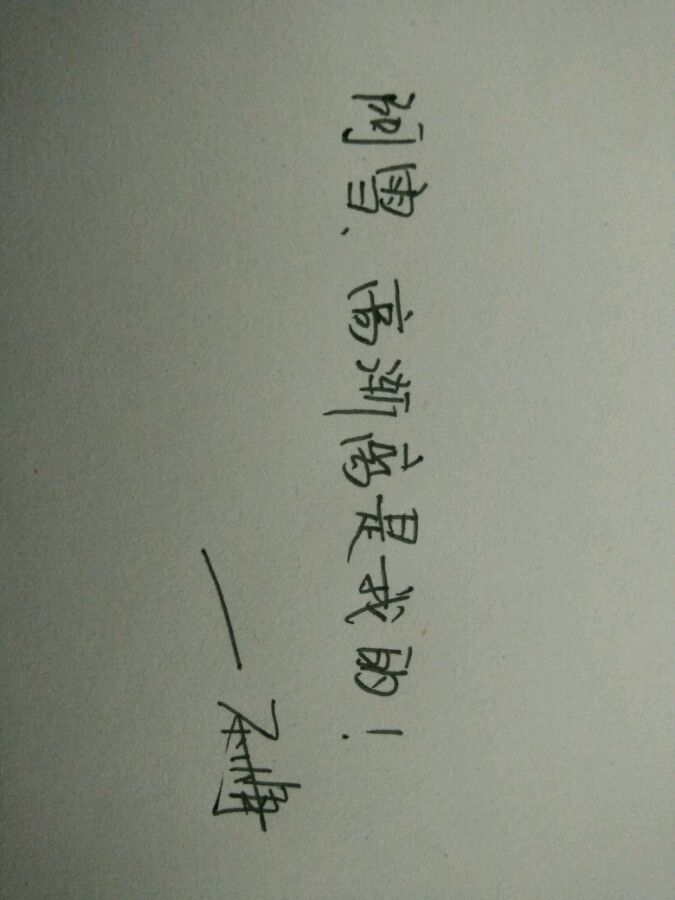 阿雪、高渐离是我的！
——